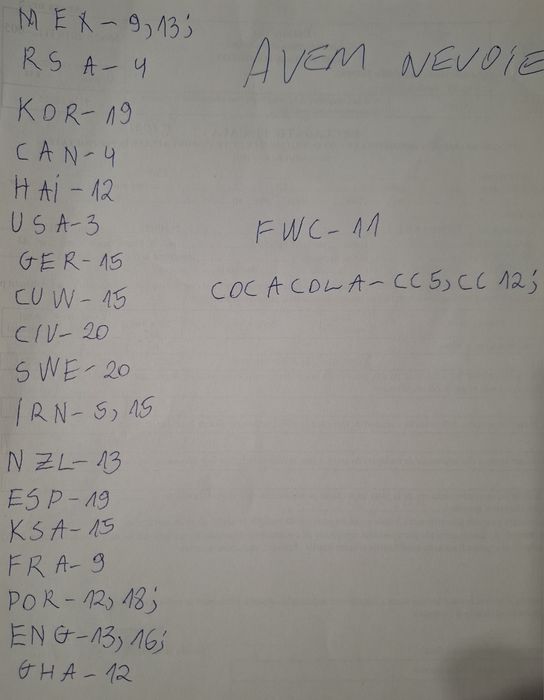 MEX - 9, 13;
RSA - 4
AVEM NEVOIE
KOR - 19
CAN - 4
HAi - 12
USA - 3
FWC - 11
GER - 15
COCACOLA - CC5, CC12;
CUW - 15
CIV - 20
SWE - 20
IRN - 5, 15
NZL - 13
ESP - 19
KSA - 15
FRA - 9
POR - 12, 18;
ENG - 13, 16;
GHA - 12